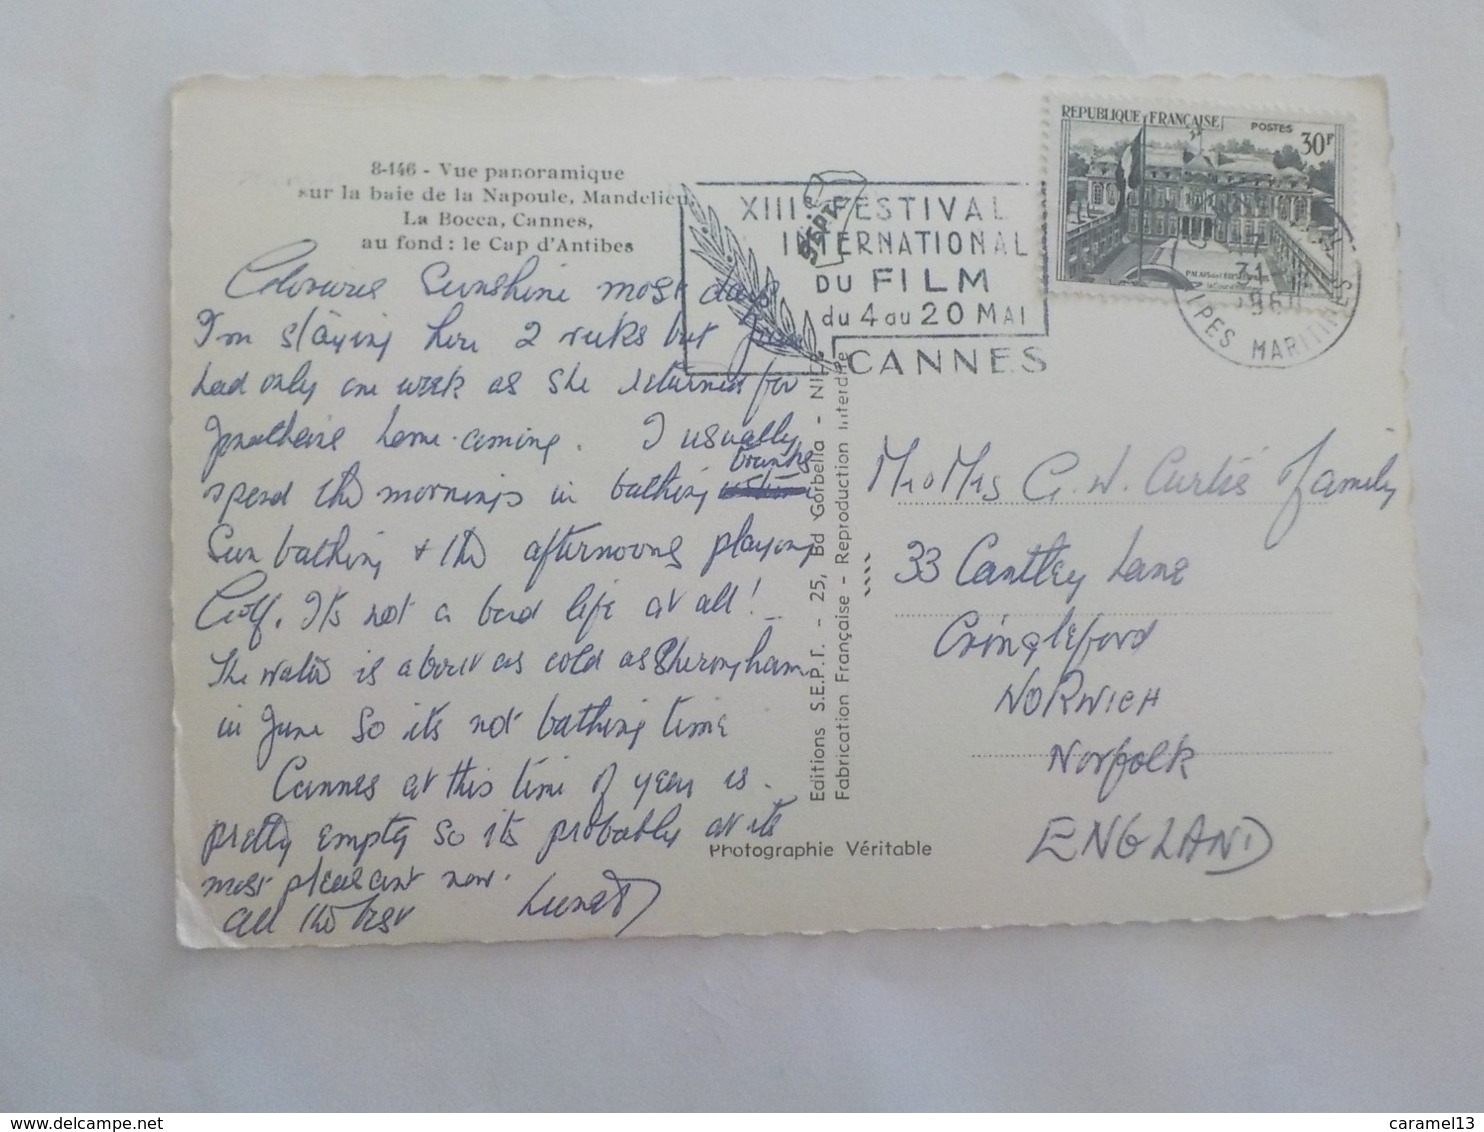 8-146 - Vue panoramique
sur la baie de la Napoule, Mandelieu,
La Bocca, Cannes,
au fond : le Cap d'Antibes
Sunshine most days
I'm staying here 2 weeks but
had only one week as she returned for
home-coming. I usually
spend the mornings in bathing trunks
Sun bathing & the afternoons playing
Golf. It's not a bad life at all!
The water is about as cold as Sheringham
in June so it's not bathing time
Cannes at this time of year is
pretty empty so it's probably at its
most pleasant now.
All the best
XIIIe FESTIVAL
INTERNATIONAL
DU FILM
du 4 au 20 MAI
CANNES
SEPT
REPUBLIQUE FRANÇAISE
POSTES
30F
31
ALPES MARITIMES
Editions S.E.P.T. - 25, Bd Gorbella - NICE
Fabrication Française - Reproduction Interdite
Photographie Véritable
Mr & Mrs G. W. Curtis & Family
33 Cantley Lane
Cringleford
NORWICH
Norfolk
ENGLAND
delcampe.net
caramel13